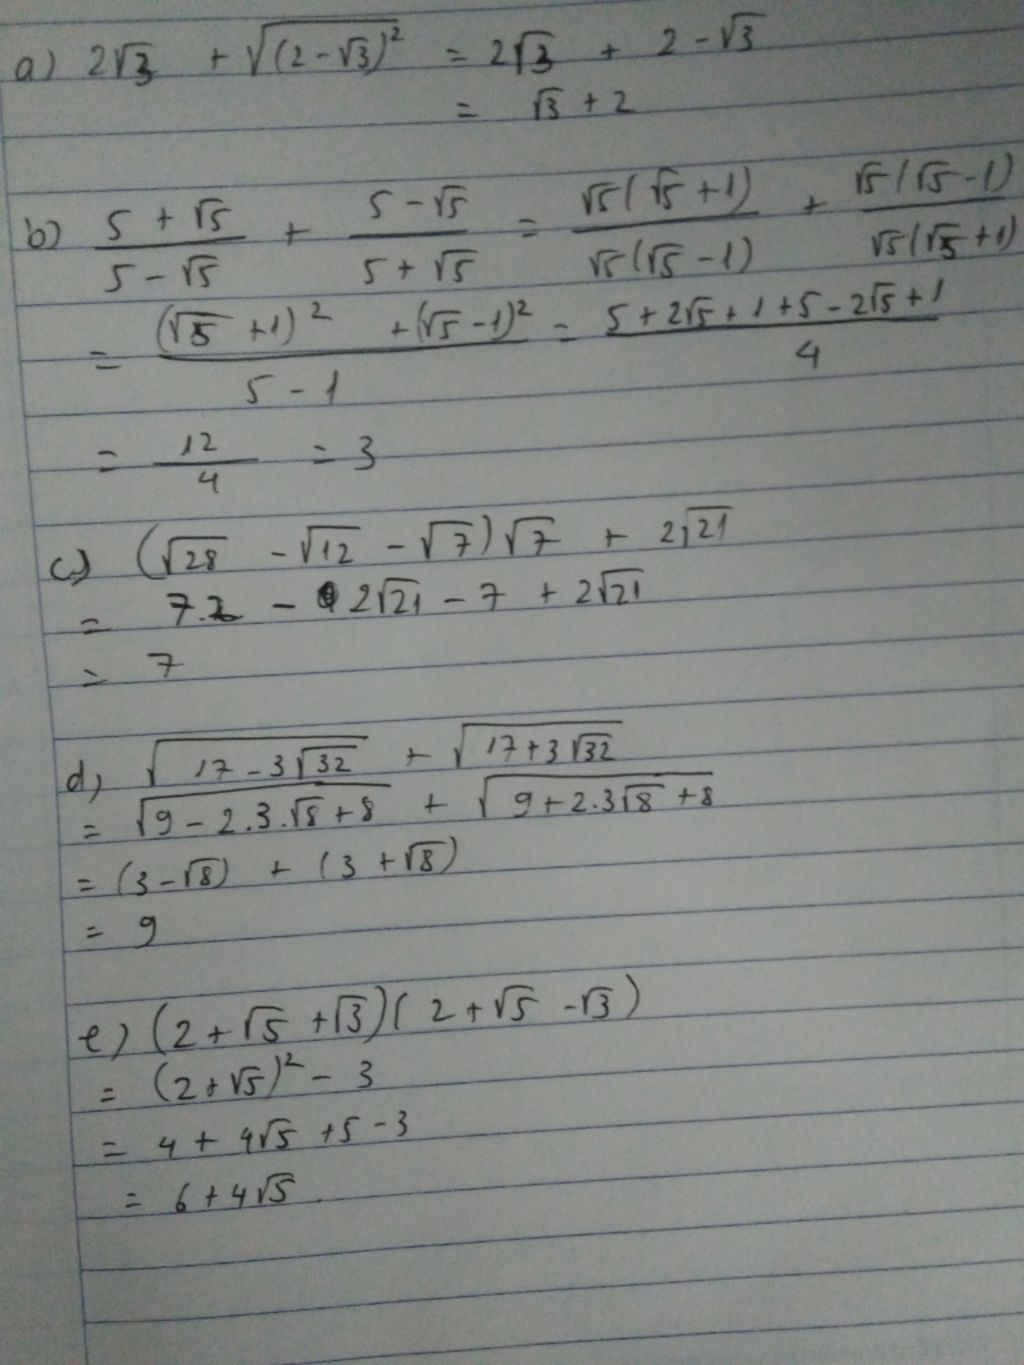 a) 2√3 + √(2-√3)² = 2√3 + 2-√3
= √3 + 2
b) (5 + √5)/(5 - √5) + (5 - √5)/(5 + √5) = √5(√5+1)/√5(√5-1) + √5(√5-1)/√5(√5+1)
= ((√5 +1)² + (√5-1)²)/(5 - 1) = (5+2√5+1+5-2√5+1)/4
= 12/4 = 3
c) (√28 - √12 - √7)√7 + 2√21
= 7.2 - 2√21 - 7 + 2√21
= 7
d) √(17-3√32) + √(17+3√32)
= √(9-2.3.√8+8) + √(9+2.3√8+8)
= (3-√8) + (3+√8)
= 9
e) (2+√5+√3)(2+√5-√3)
= (2+√5)² - 3
= 4 + 4√5 + 5 - 3
= 6 + 4√5.